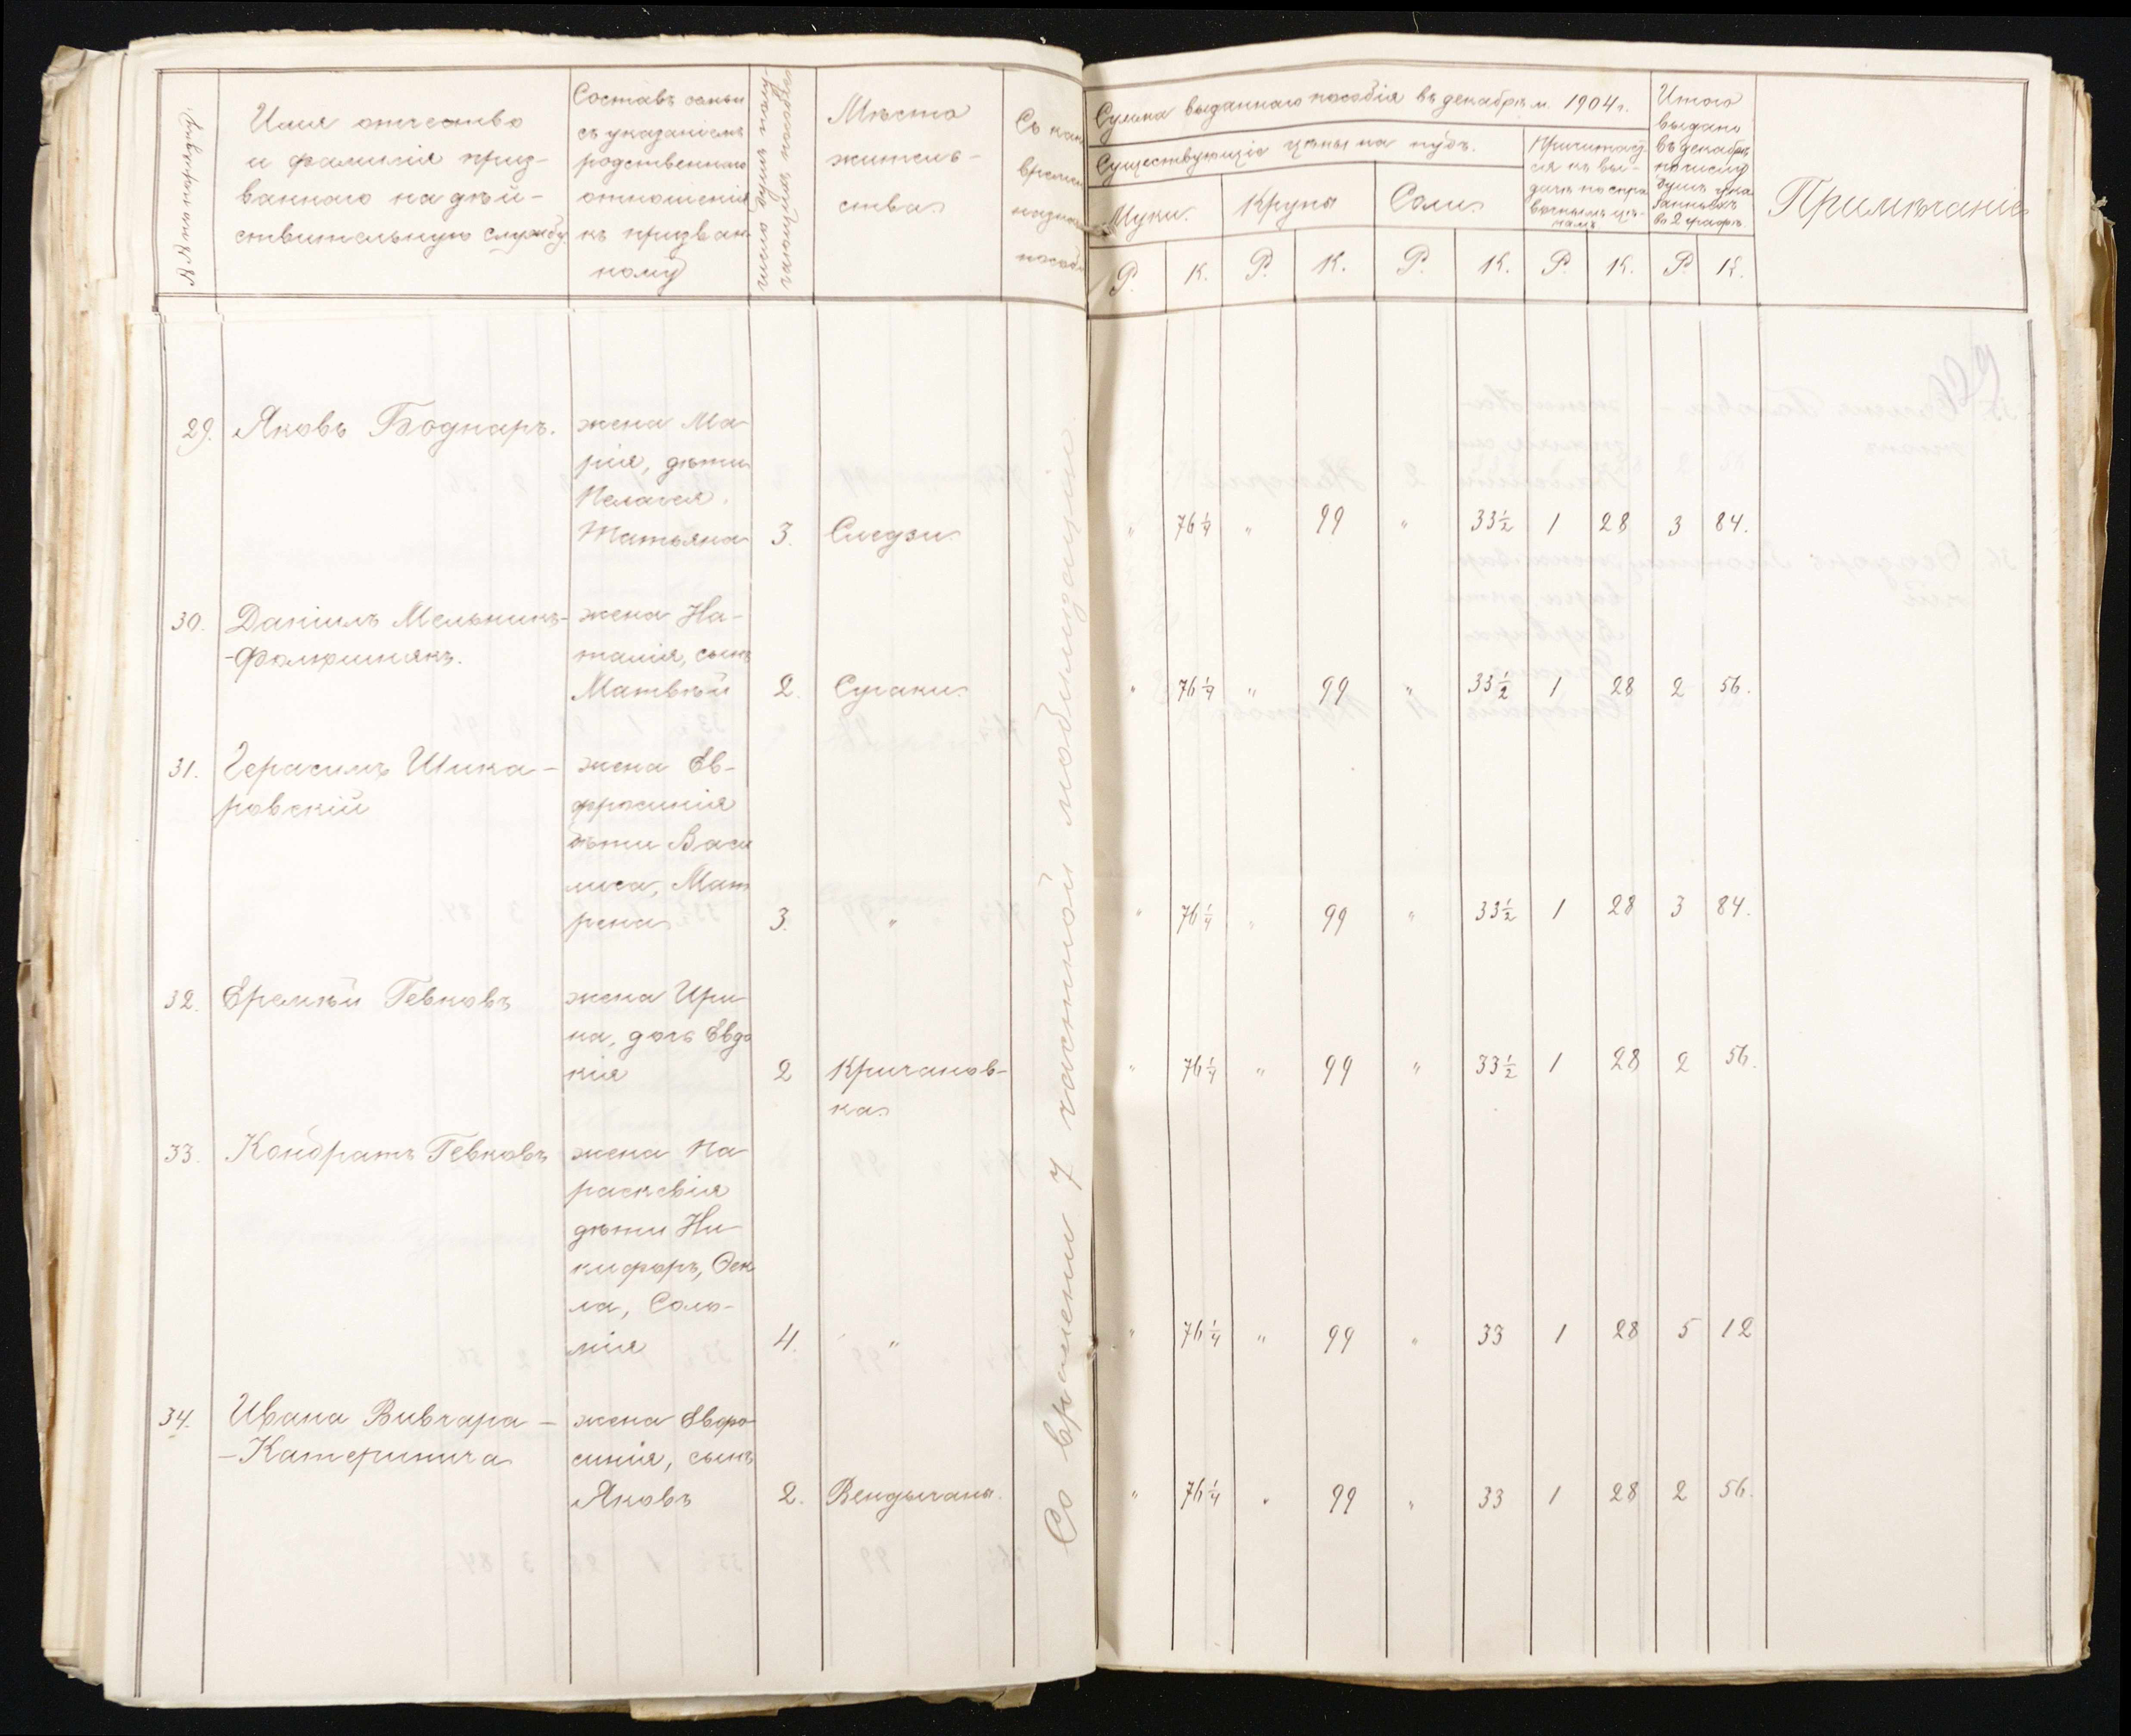 №№ по порядку
Имя отчество
и фамилія приз-
ваннаго на дѣй-
ствительную службу
Составъ семьи
съ указаніемъ
родственнаго
отношенія
къ призван-
ному
число душъ полу-
чающихъ пособіе
Мѣсто
житель-
ства
Съ как
времен
назнач
пособі
Сумма выданнаго пособія въ декабрѣ м. 1904 г.
Существующіе цѣны на пудъ.
Муки. Крупы Соли.
Причитаю
ся къ вы-
дачѣ по спра
вочнымъ цѣ-
намъ
Итого
выдано
въ декабрѣ
по числу
душъ ука
занныхъ
въ 2 графѣ.
Примѣчаніе
Р. К. Р. К. Р. К. Р. К. Р. К.
29. Яковъ Боднаръ. жена Ма-
рія, дѣти
Пелагея
Татьяна 3. Следзи. " 76 1/4 " 99 " 33 1/2 1 28 3 84.
30. Даніилъ Мельникъ- жена На-
-Фалюшнякъ. талія, сынъ
Матвѣй 2. Сугаки. " 76 1/4 " 99 " 33 1/2 1 28 2 56.
31. Герасимъ Шика- жена Ев-
ровскій фросинія
дѣти Васи
лиса, Мат
рена 3. " " 76 1/4 " 99 " 33 1/2 1 28 3 84.
32. Еремѣй Гевковъ жена Ири-
на, дочь Евдо
кія 2 Кричанов- " 76 1/4 " 99 " 33 1/2 1 28 2 56.
ка.
33. Кондратъ Гевковъ жена Па
раскевія
дѣти Ни-
кифоръ, Ѳек
ла, Соло-
мія 4. " " 76 1/4 " 99 " 33 1 28 5 12
34. Ивана Вивчара- жена Евфро
-Катеринича синія, сынъ
Яковъ 2. Вендычаны. " 76 1/4 " 99 " 33 1 28 2 56.
Со времени 7 частной мобилизаціи